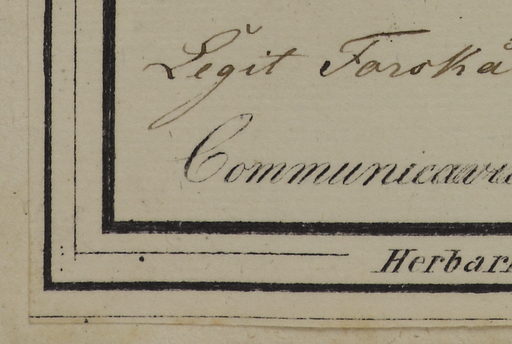 Legit Forskå
Communicavi
Herbar